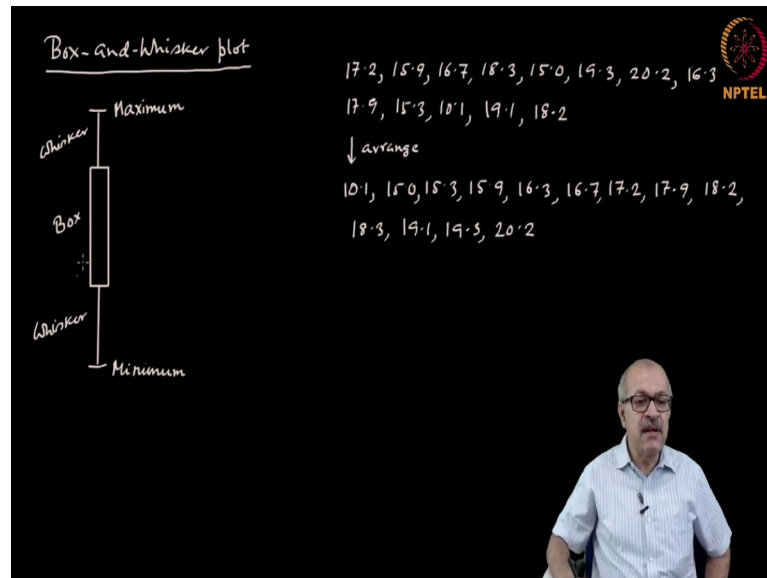 Box-and-Whisker plot
Maximum
Whisker
Box
Whisker
Minimum
17.2, 15.9, 16.7, 18.3, 15.0, 19.3, 20.2, 16.3
17.9, 15.3, 10.1, 19.1, 18.2
↓ arrange
10.1, 15.0, 15.3, 15.9, 16.3, 16.7, 17.2, 17.9, 18.2,
18.3, 19.1, 19.3, 20.2
NPTEL